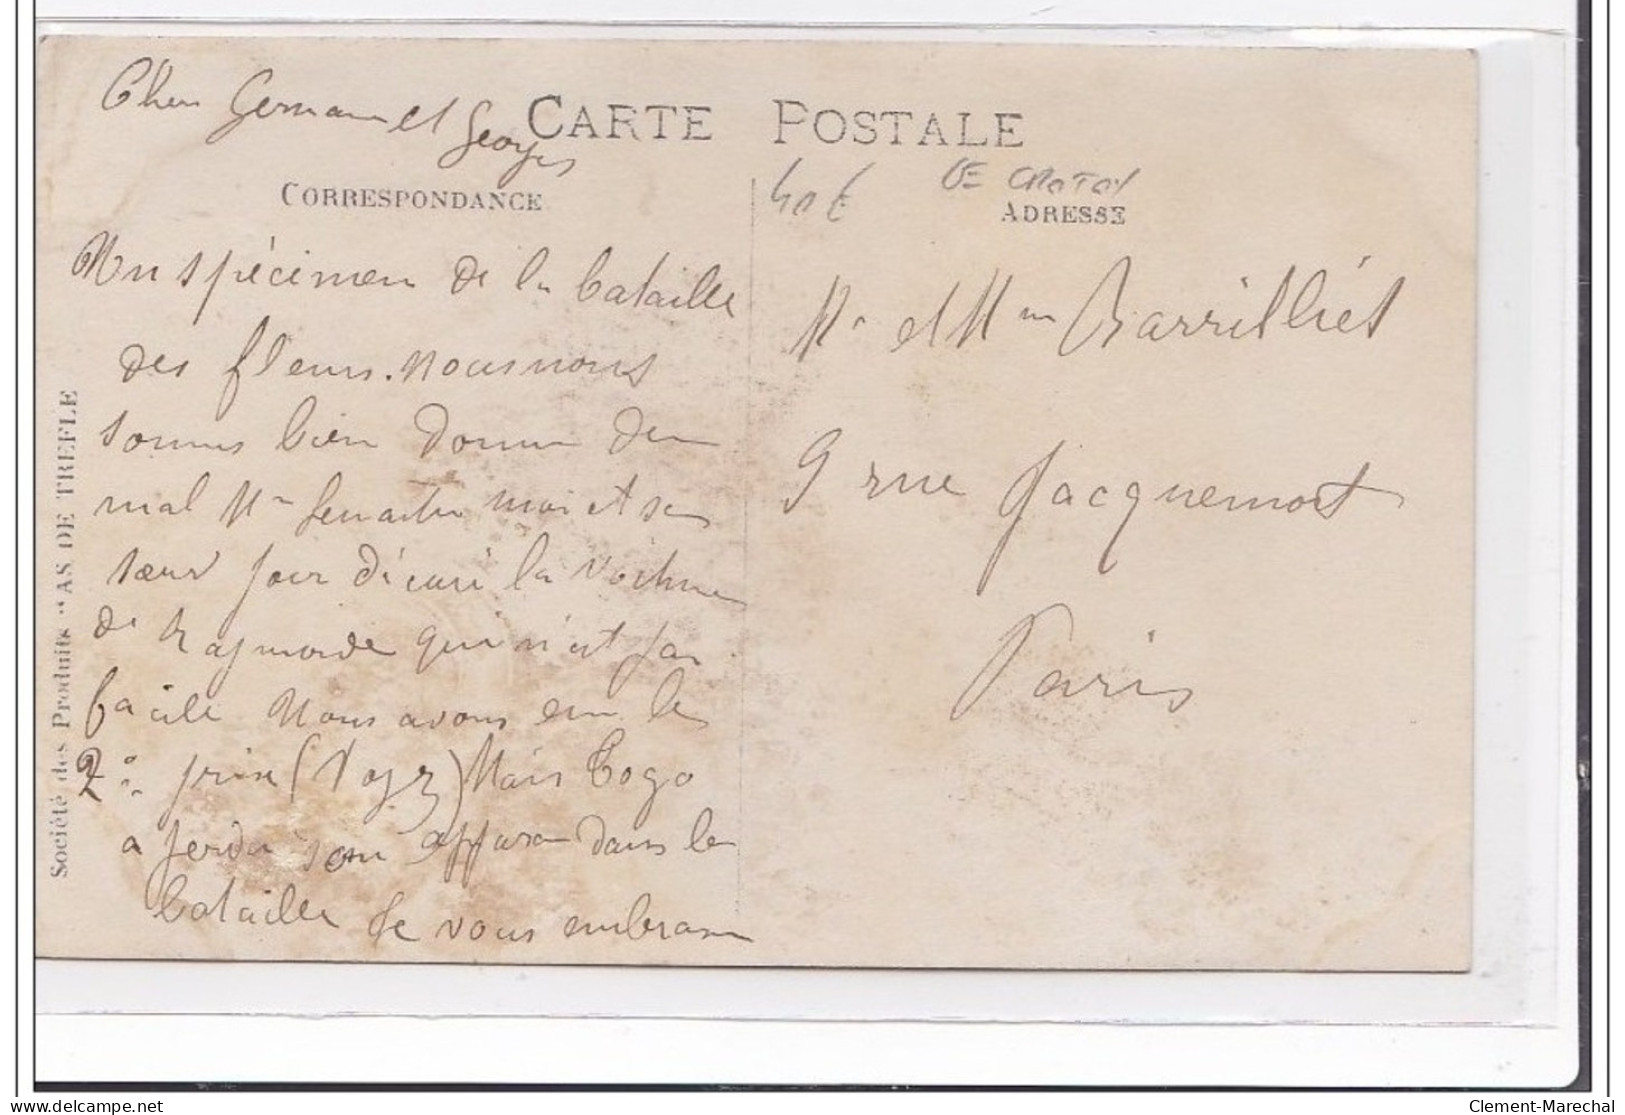 Chers Germaine et
Georges
CARTE POSTALE
CORRESPONDANCE
40 €
LE CROTOY
ADRESSE
Un spécimen de la bataille
des fleurs. Nous nous
sommes bien donné du
mal Mr moi et sa
sœur pour décoré la voiture
de Raymonde qui n'est pas
facile Nous avons eu le
2e prix (Voyez) Mais Togo
a perdu son dans la
bataille Je vous embrasse
Mr et Mme Barrilliét
9 rue Jacquemont
Paris
Société des Produits "AS DE TREFLE
delcampe.net
Clement-Marechal